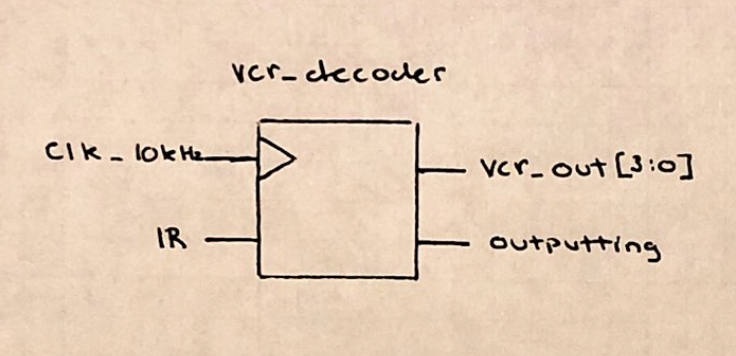 vcr_decoder
Clk_10kHz
vcr_out[3:0]
IR
outputting